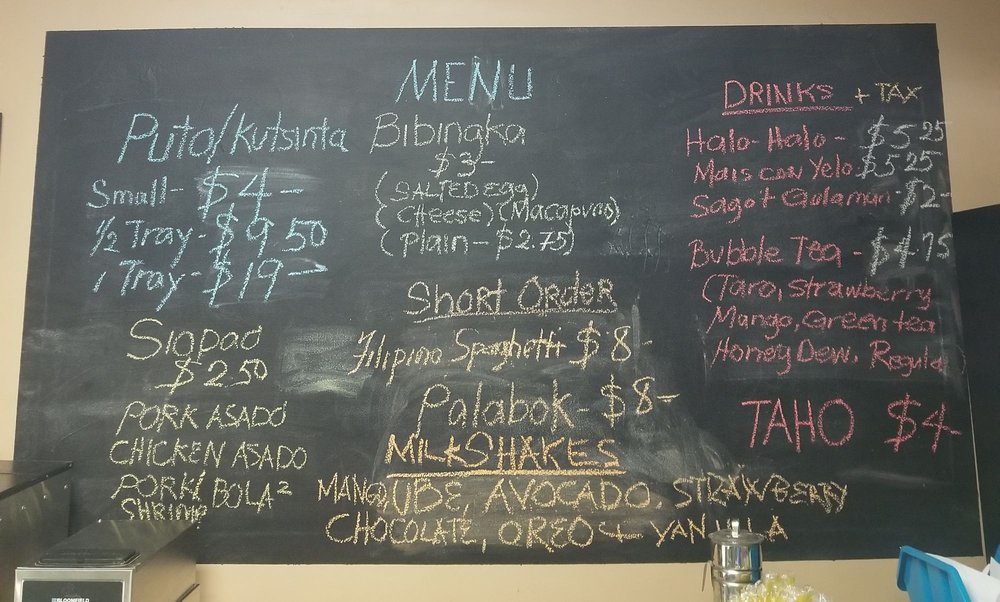 MENU
Puto/Kutsinta
Small- $4-
1/2 Tray- $9.50
1 Tray- $19-
Siopao
$2.50
PORK ASADO
CHICKEN ASADO
PORK/ BOLA2
SHRIMP
Bibingka
$3-
(SALTED EGG)
(Cheese) (Macapuno)
(Plain- $2.75)
Short Order
Filipino Spaghetti $8-
Palabok- $8-
MILKSHAKES
MANGO, UBE, AVOCADO, STRAWBERRY
CHOCOLATE, OREO & VANILLA
DRINKS + TAX
Halo-Halo- $5.25
Mais con Yelo $5.25
Sago + Gulaman $2-
Bubble Tea- $4.75
(Taro, Strawberry
Mango, Green tea
Honey Dew, Regular
TAHO $4-
BLOOMFIELD